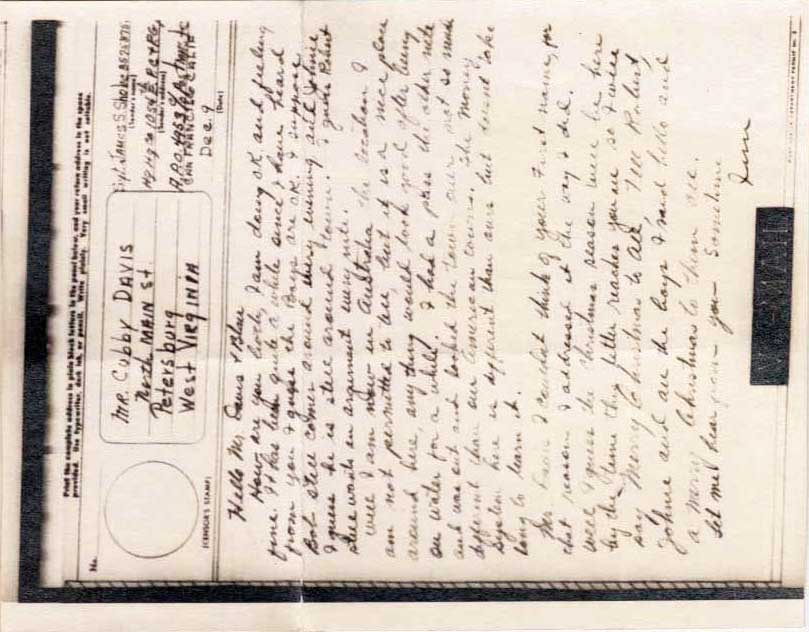 Print the complete address in plain block letters in the panel below, and your return address in the space
provided. Use typewriter, dark ink, or pencil. Write plainly. Very small writing is not suitable.
No.
(CENSOR'S STAMP)
MR. Cubby DAVIS
North MAIN St
Petersburg
West VIRGINIA
Sgt. JAMES S.
(Sender's name)
(Sender's address)
A.P.O.
SAN FRANCISCO CALIF
Dec. 9
(Date)
Hello Mr. Davis & Blair
How are you both, I am doing ok and feeling
fine. It has been quite a while since I have heard
from you I guess the Boys are ok. I suppose
Bob still comes around every evening and Johnie
I guess he is still around town. I guess Robert
still waits an argument every nite.
Well I am now in Australia the location I
am not permitted to tell, but it is a nice place
around here, any thing would look good after being
on water for a while. I had a pass the other nite
and was out and looked the town over not so much
different than our American towns. The money
system here is different than ours but doesnt take
long to learn it.
Mr. Davis I couldnt think of your First name, for
that reason I addressed it the way I did.
Well I guess the Christmas season will be here
by the time this letter reaches you so I will
say Merry Christmas to all. Tell Robert,
Johnie and all the boys I said hello and
a merry Christmas to them all.
Let me hear from you sometime
Jim
V-MAIL